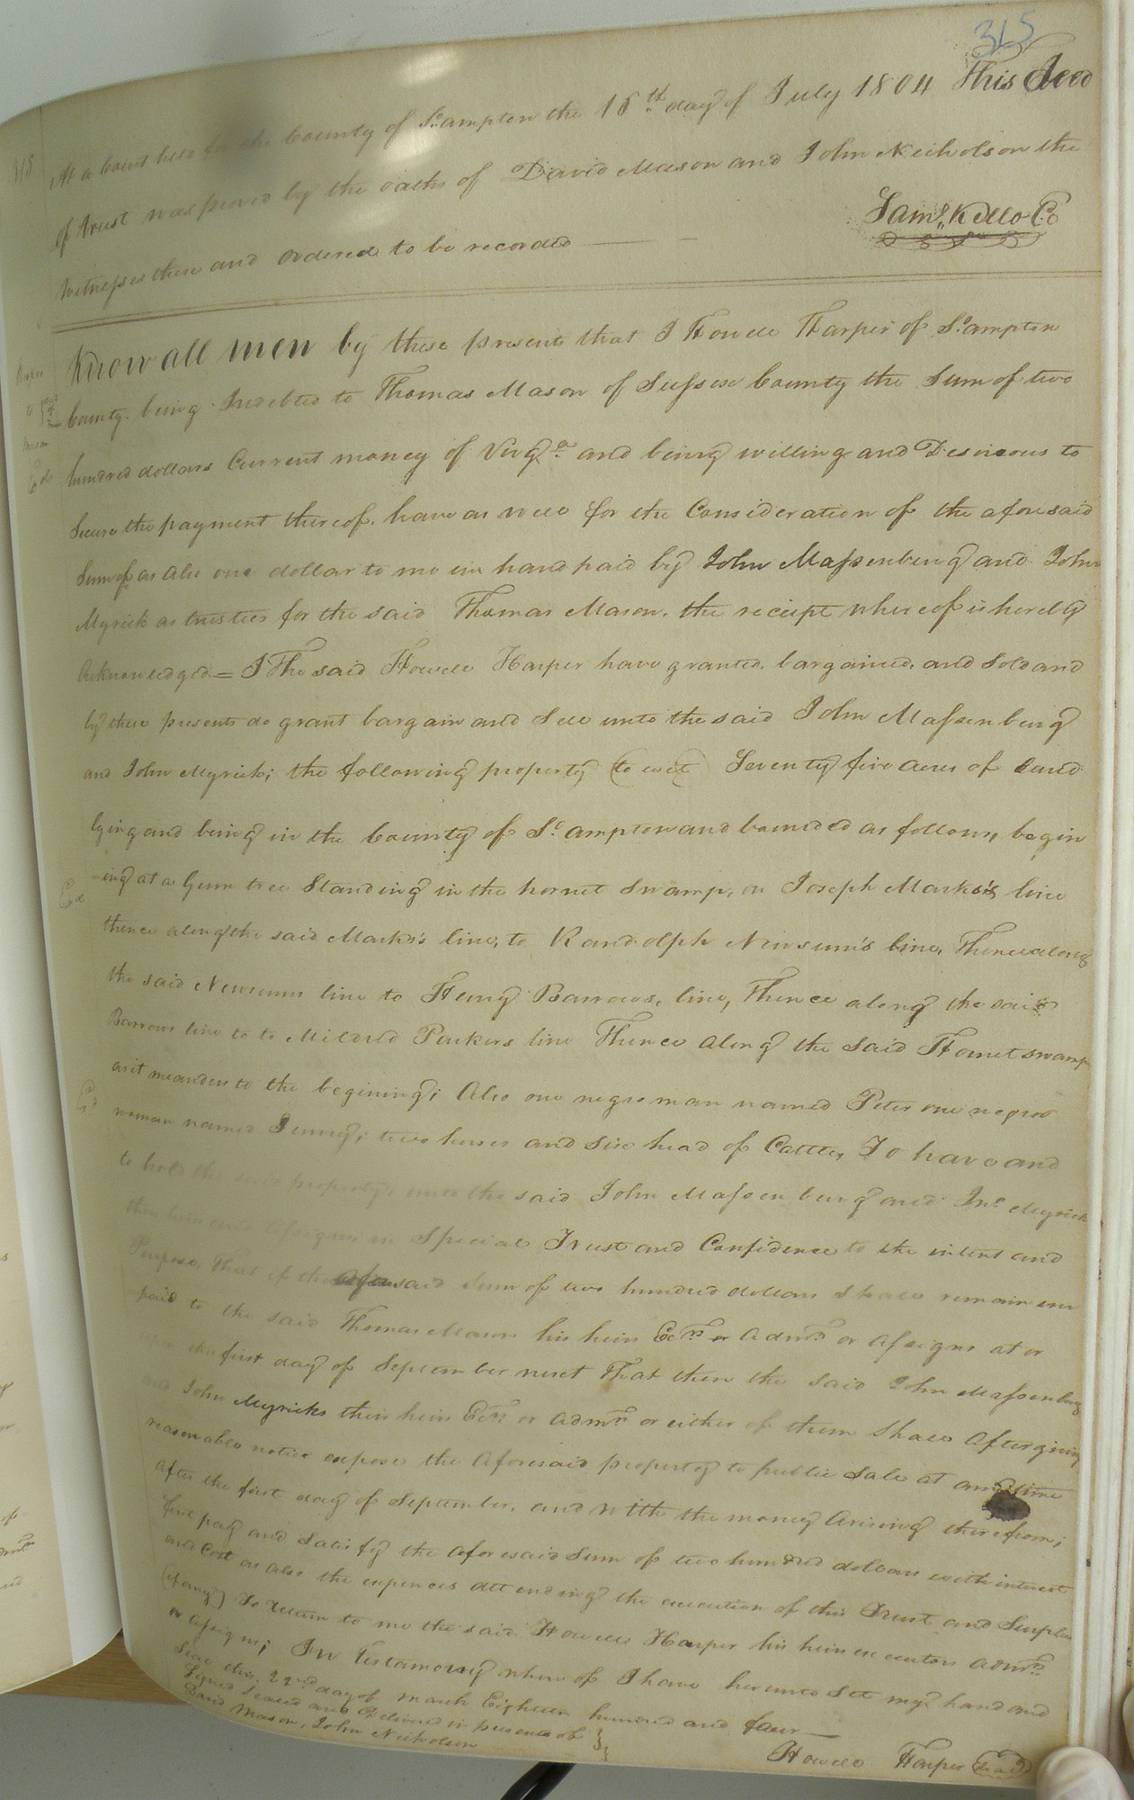 315
At a Court held for the County of So.ampton the 16th day of July 1804 This Deed
of trust was proved by the oaths of David Mason and John Nicholson the
witnesses thereto and ordered to be recorded
Saml. Kello C.C
Know all men by these presents that I Howell Harper of So.ampton
County being Indebted to Thomas Mason of Sussex County the Sum of two
hundred dollars Current money of Virga. and being willing and Desireous to
Secure the payment thereof. have as well for the Consideration of the aforesaid
Sum of as also one dollar to me in hand paid by John Massenburg and John
Myrick as trustees for the said Thomas Mason. the receipt whereof is hereby
Acknowledged = I The said Howell Harper have granted. bargained. and Sold and
by these presents do grant bargain and Sell unto the said John Massenburg
and John Myrick; the following property (to wit) Seventy five acres of Land
lying and being in the County of So.ampton and bounded as follows, begin
-ing at a Gum tree Standing in the hornet Swamp, on Joseph Marks's line
thence along the said Marks's line, to Randolph Newsum's line, Thence along
the said Newsums line to Henry Barrows, line, Thence along the said
Barrows line to to Mildred Parkers line Thence along the said Hornet swamp
as it meanders to the begining; Also one negro man named Peter one negroe
woman named Jenney; two horses and Six head of Cattle, To have and
to hold the said property, unto the said John Massenburg and Jno. Myrick
their heirs and Assigns in Special Trust and Confidence to the intent and
Purpose, That if the aforesaid Sum of two hundred dollars Shall remain un
paid to the said Thomas Mason his heirs Ecrs. or Admrs. or Assigns at or
the first day of September next That then the said John Massenburg
and John Myricks their heirs Ecrs. or Admrs. or either of them Shall after giving
reasonable notice expose the aforesaid property to public Sale at any time
after the first day of September. and with the money Arising therefrom;
first pay and Satisfy the aforesaid Sum of two hundred dollars with interest
and Cost as also the expences attending the execution of this Trust and Surplus
(if any) To return to me the said Howell Harper his heirs executors Admrs.
or assigns; In testamony whereof I have hereunto Set my hand and
Seal this 22nd day of March Eighteen hundred and four
Signed Sealed and Delivered in presence of
David Mason, John Nicholson
Howell Harper (Seal)